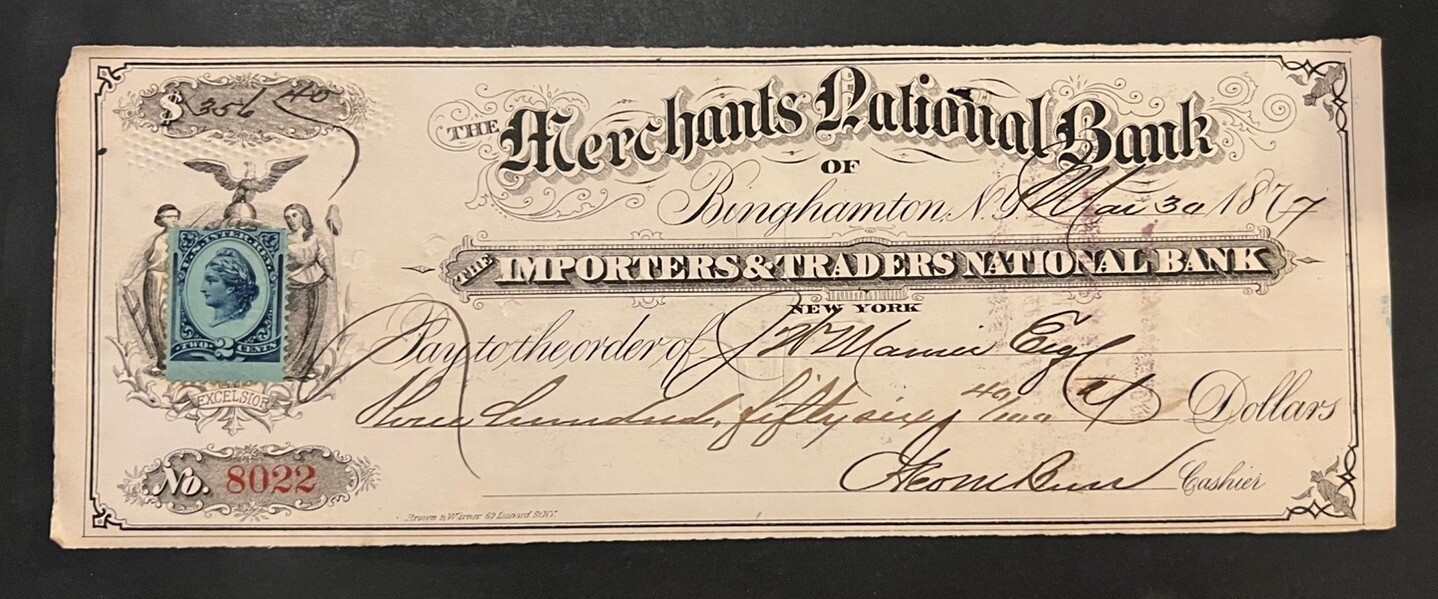 $ 356 40
THE Merchants National Bank
OF
Binghamton, N.Y. Mar 30 1877
THE IMPORTERS & TRADERS NATIONAL BANK
NEW YORK
Pay to the order of J W Manier Esq
Three hundred, fifty six 40/100 Dollars
Cashier
U.S. INTER. REV.
TWO 2 CENTS
EXCELSIOR
No. 8022
Brown & Warner 69 Leonard St. N.Y.